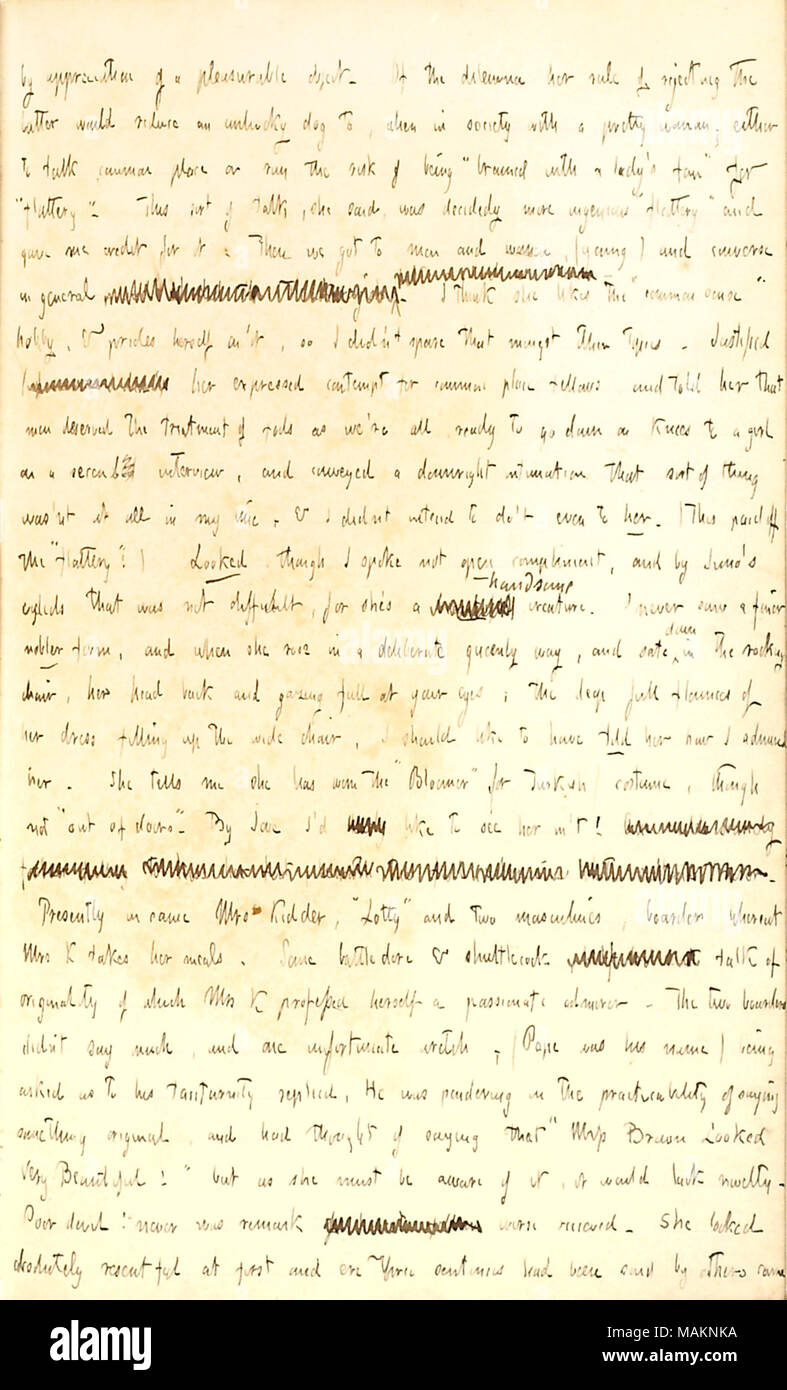 by appreciation of a pleasurable object. Of the dilemma her rule of rejecting the
latter would reduce an unlucky dog to, when in society with a pretty woman, either
to talk common place or run the risk of being "brained with a lady's fan" for
"flattery". This sort of talk, she said, was decidedly more ingenious "flattery" and
gave me credit for it. Then we got to men and women, (young) and converse
in general. I think she likes the "common sense"
hobby, & prides herself on't, so I didn't spare that mongst other topics. Justified
her expressed contempt for common place fellows and told her that
men deserved the treatment of fools as we're all ready to go down on knees to a girl
on a second interview, and conveyed a downright intimation that sort of thing
was'nt at all in my line, & I didnt intend to do't even to her. (This paid off
the "flattery"!) Looked, though I spoke not open compliment, and by Juno's
eyelids that was not difficult, for she's a handsome creature. I never saw a finer
nobler form, and when she rose in a deliberate queenly way, and sate down in the rocking
chair, her head back and gazing full at your eyes; the deep full flounces of
her dress filling up the wide chair, I should like to have told her how I admired
her. She tells me she has worn the "Bloomer" (or Turkish) costume, though
not "out of doors". By Jove I'd like to see her in't!
Presently in came Mrs Kidder, "Lotty" and two masculines, boarders whereat
Mrs K takes her meals. Some battledore & shuttlecock talk of
originality of which Mrs K professed herself a passionate admirer. The two boarders
didn't say much, and one unfortunate wretch, (Pope was his name) being
asked as to his taciturnity replied, He was pondering on the practicability of saying
something original, and had thought of saying that "Miss Brown Looked
Very Beautiful!" but as she must be aware of it, it would lack novelty.
Poor devil! never was remark worse received. She looked
absolutely resentful at first and ere three sentences had been said by others came
alamy
Image ID: MAKNKA
www.alamy.com